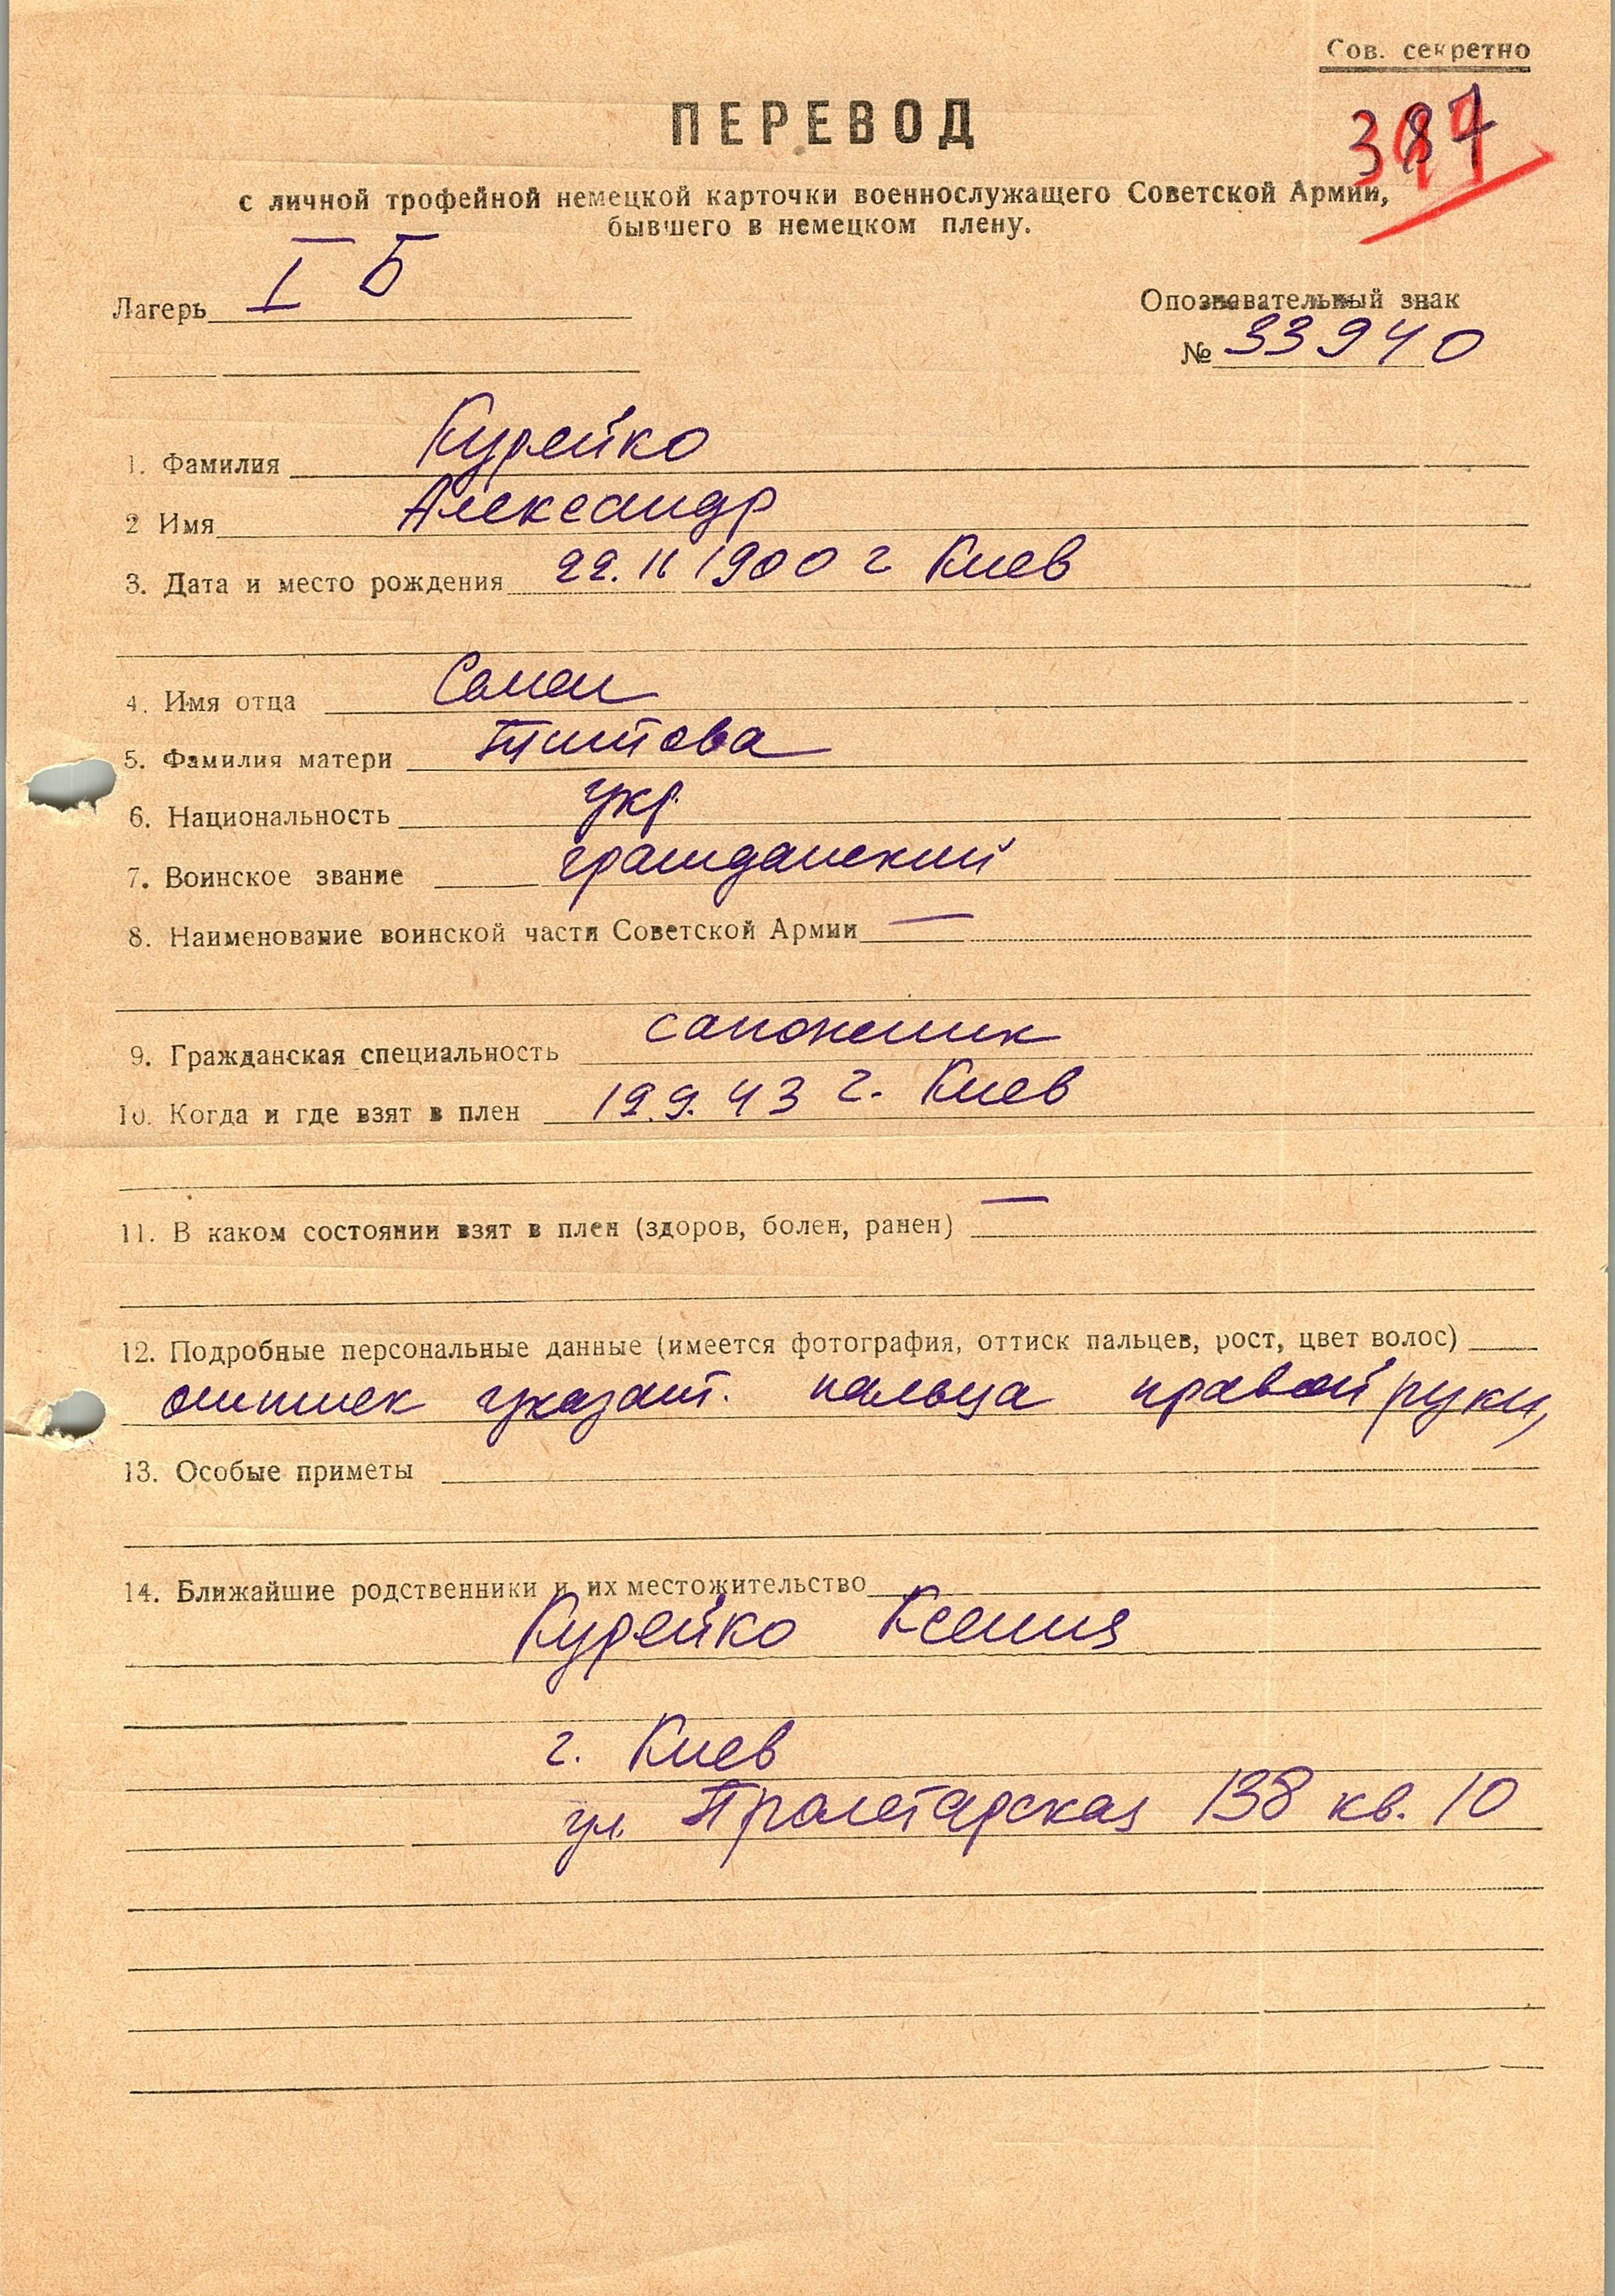 Сов. секретно
ПЕРЕВОД
с личной трофейной немецкой карточки военнослужащего Советской Армии,
бывшего в немецком плену.
Лагерь I Б
Опознавательный знак
№ 33940
1. Фамилия Курейко
2 Имя Александр
3. Дата и место рождения 22.11 1900 г Киев
4. Имя отца
5. Фамилия матери Титова
6. Национальность укр.
7. Воинское звание гражданский
8. Наименование воинской части Советской Армии —
9. Гражданская специальность сапожник
10. Когда и где взят в плен 19.9.43 г. Киев
11. В каком состоянии взят в плен (здоров, болен, ранен) —
12. Подробные персональные данные (имеется фотография, оттиск пальцев, рост, цвет волос)
оттиск указат. пальца правой руки,
13. Особые приметы
14. Ближайшие родственники и их местожительство
Курейко Ксения
г. Киев
ул. Пролетарская 138 кв. 10